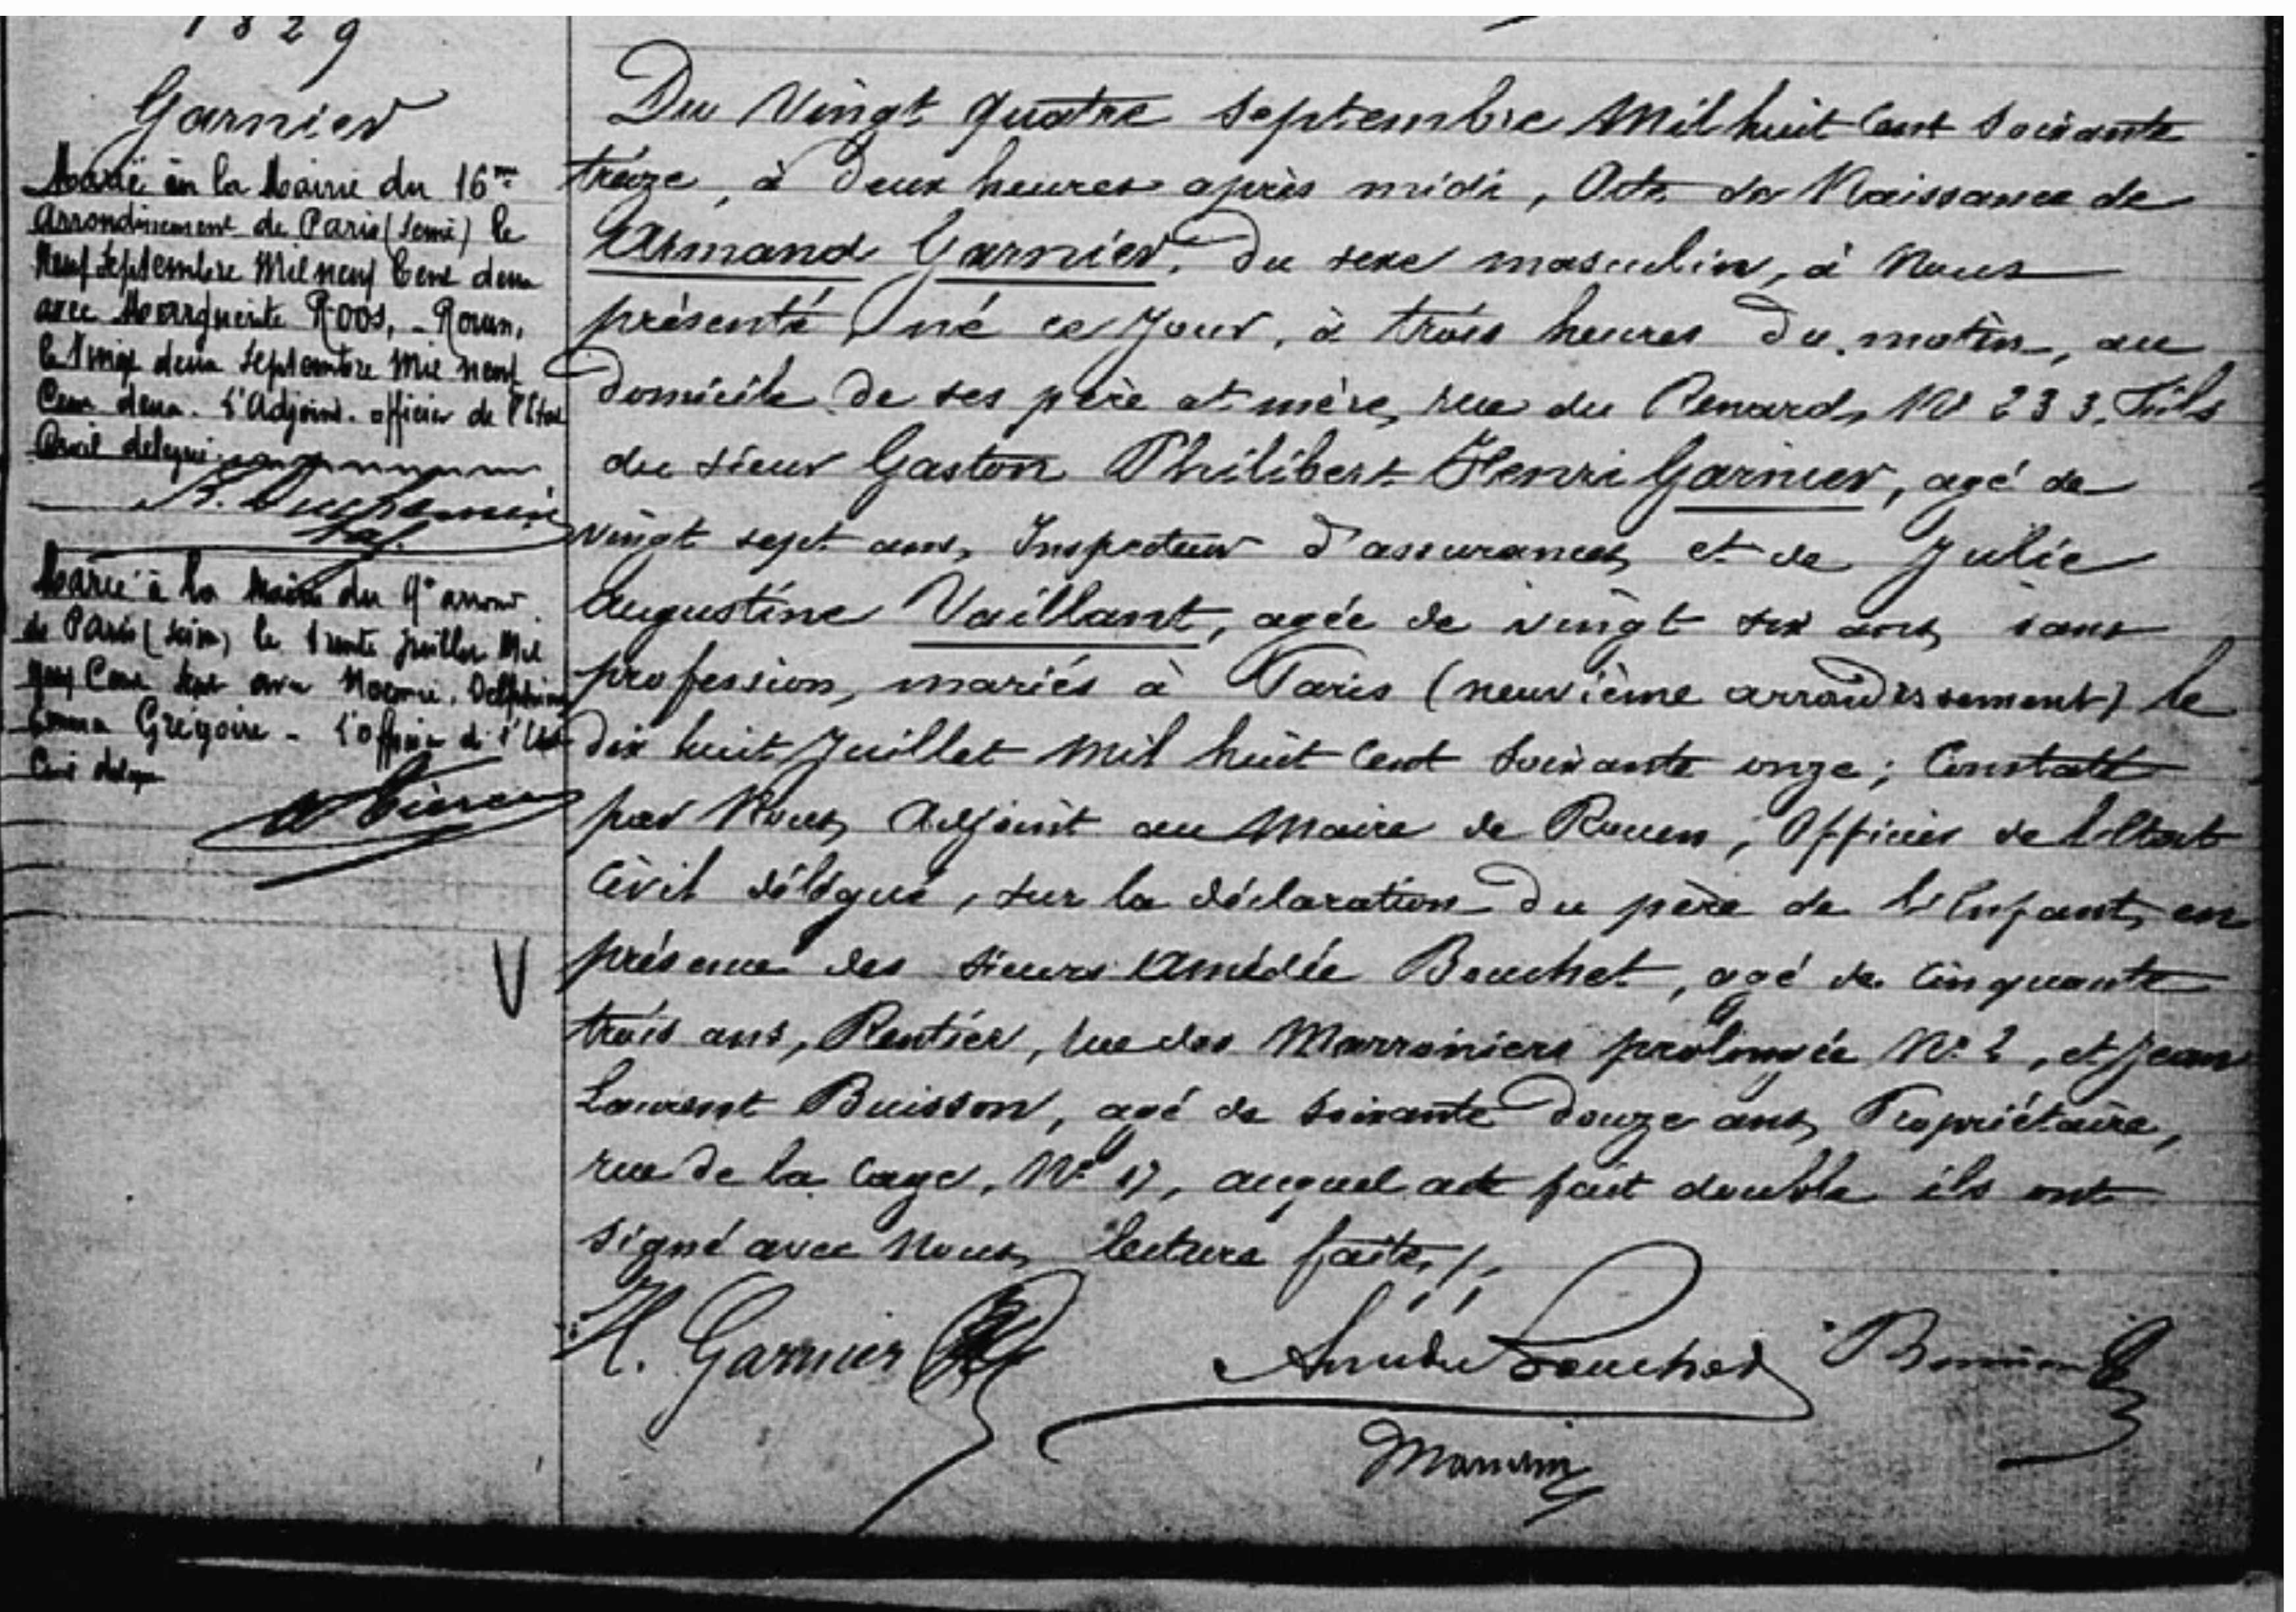 1829
Garnier
Marié en la Mairie du 16me
Arrondissement de Paris (Seine) le
Neuf Septembre Mil neuf Cent deux
avec Marguerite Roos, - Rouen,
le Vingt deux Septembre Mil neuf
Cent deux. L'Adjoint. officier de l'Etat
Civil délégué.
Marié à la Mairie du 9e arrond.
de Paris (Seine) le trente juillet Mil
neuf Cent sept avec Noémie, Delphine
Emma Grégoire - L'officier de l'Etat
Civil délégué
Du Vingt quatre Septembre Mil huit Cent Soixante
treize, à Deux heures après midi, Acte de Naissance de
Armand Garnier, Du sexe masculin, à Nous
présenté, né ce Jour, à trois heures Du matin, au
Domicile de ses père et mère, rue du Renard, No 233. Fils
du sieur Gaston Philibert Henri Garnier, agé de
vingt sept ans, Inspecteur D'assurances, et de Julie
Augustine Vaillant, agée de vingt six ans, sans
profession, mariés à Paris (neuvième arrondissement) le
Dix huit Juillet Mil huit Cent Soixante onze; Constaté
par Nous, Adjoint au Maire de Rouen, Officier de l'Etat
Civil délégué, sur la déclaration Du père de l'Enfant, en
présence des sieurs Amédée Bouchet, agé de Cinquante
trois ans, Rentier, rue des Marroniers prolongée No 2, et Jean
Laurent Buisson, agé de Soixante Douze ans, Propriétaire,
rue De la Cage, No 17, auquel acte fait double ils ont
signé avec Nous, lecture faite,/,
H. Garnier
Amédée Bouchet